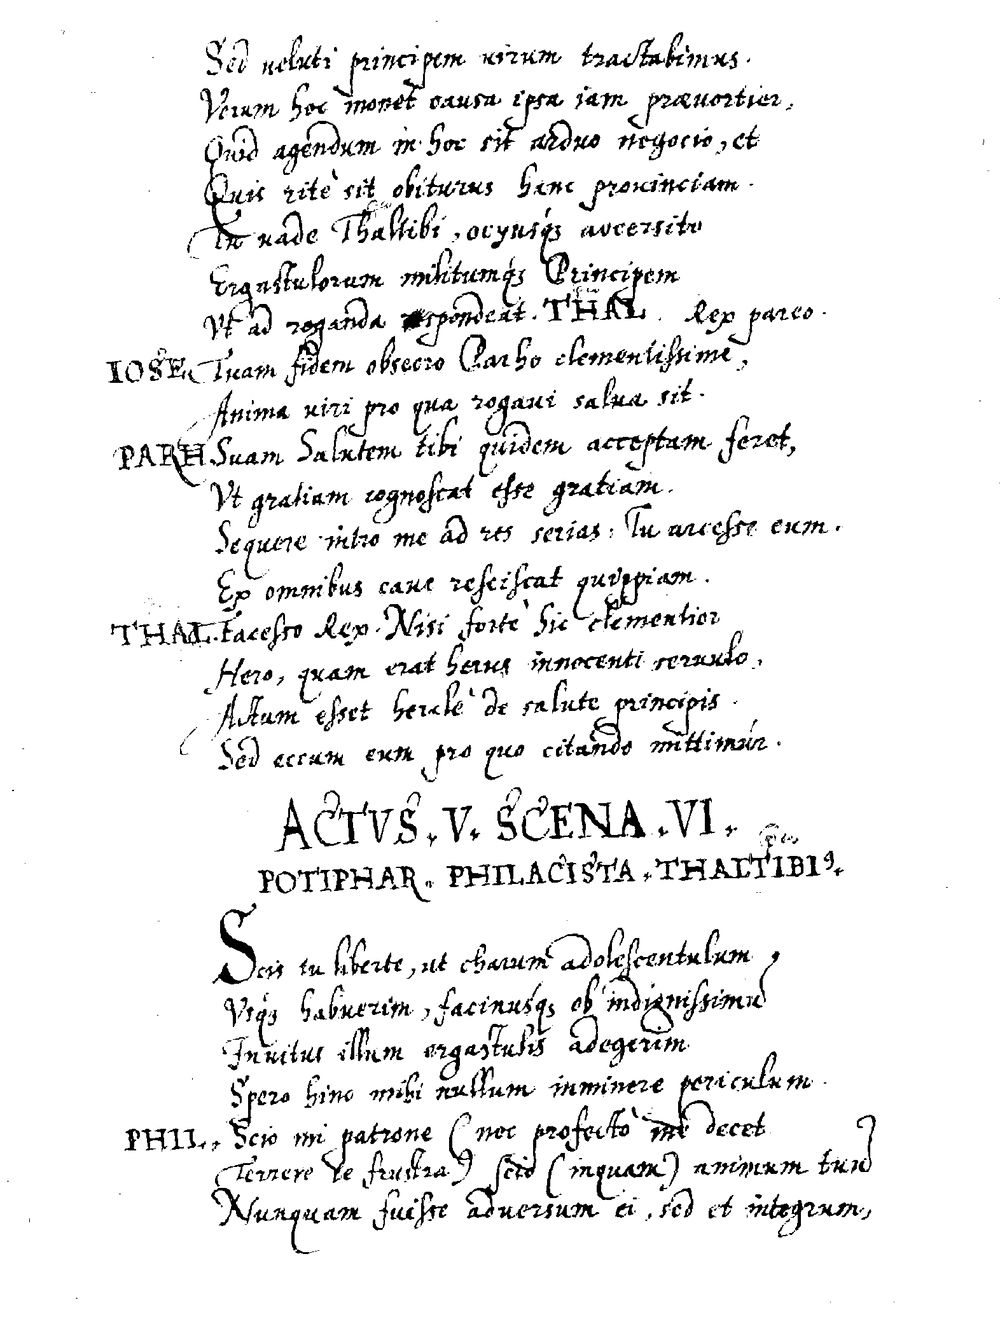 Sed veluti principem virum tractabimus.
Verum hoc monet causa ipsa iam prævortier,
Quid agendum in hoc sit arduo negocio, et
Quis ritè sit obiturus hanc provinciam.
Tu vade Thaltibi, ocyusq́; accersito
Ergastulorum militumq́; Principem
Vt ad roganda respondeat. THAL. Rex pareo.
IOSE. Tuam fidem obsecro Parho clementissime,
Anima viri pro qua rogavi salva sit.
PARH. Suam Salutem tibi quidem acceptam feret,
Vt gratiam cognoscat esse gratiam.
Sequere intro me ad res serias: Tu arcesse eum.
Ex omnibus cave resciscat quippiam.
THAL. Facesso Rex. Nisi fortè hic clementior
Hero, quam erat herus innocenti servulo,
Actum esset herclè de salute principis.
Sed eccum eum pro quo citando mittimur.
ACTVS. V. SCENA. VI.
POTIPHAR. PHILACISTA. THALTIBIꝰ.
Scis tu liberte, ut charum adolescentulum,
Vsq́; habuerim, facinusq́; ob indignissimũ
Invitus illum ergastulis adegerim
Spero hinc mihi nullum inminere periculum.
PHIL. Scio mi patrone (nec profectò me decet
Terrere te frustra) scio (inquam) animum tuũ
Nunquam fuisse adversum ei, sed et integrum,